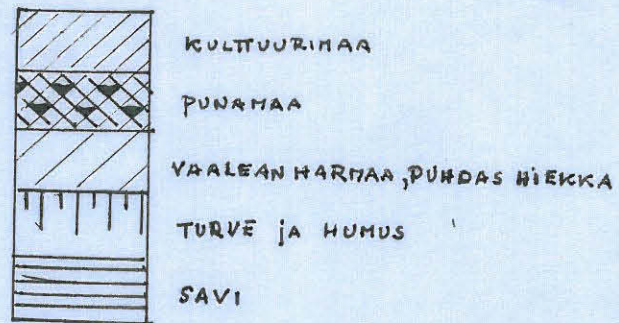 KULTTUURIMAA
PUNAMAA
VAALEAN HARMAA, PUHDAS HIEKKA
TURVE jA HUMUS
SAVI